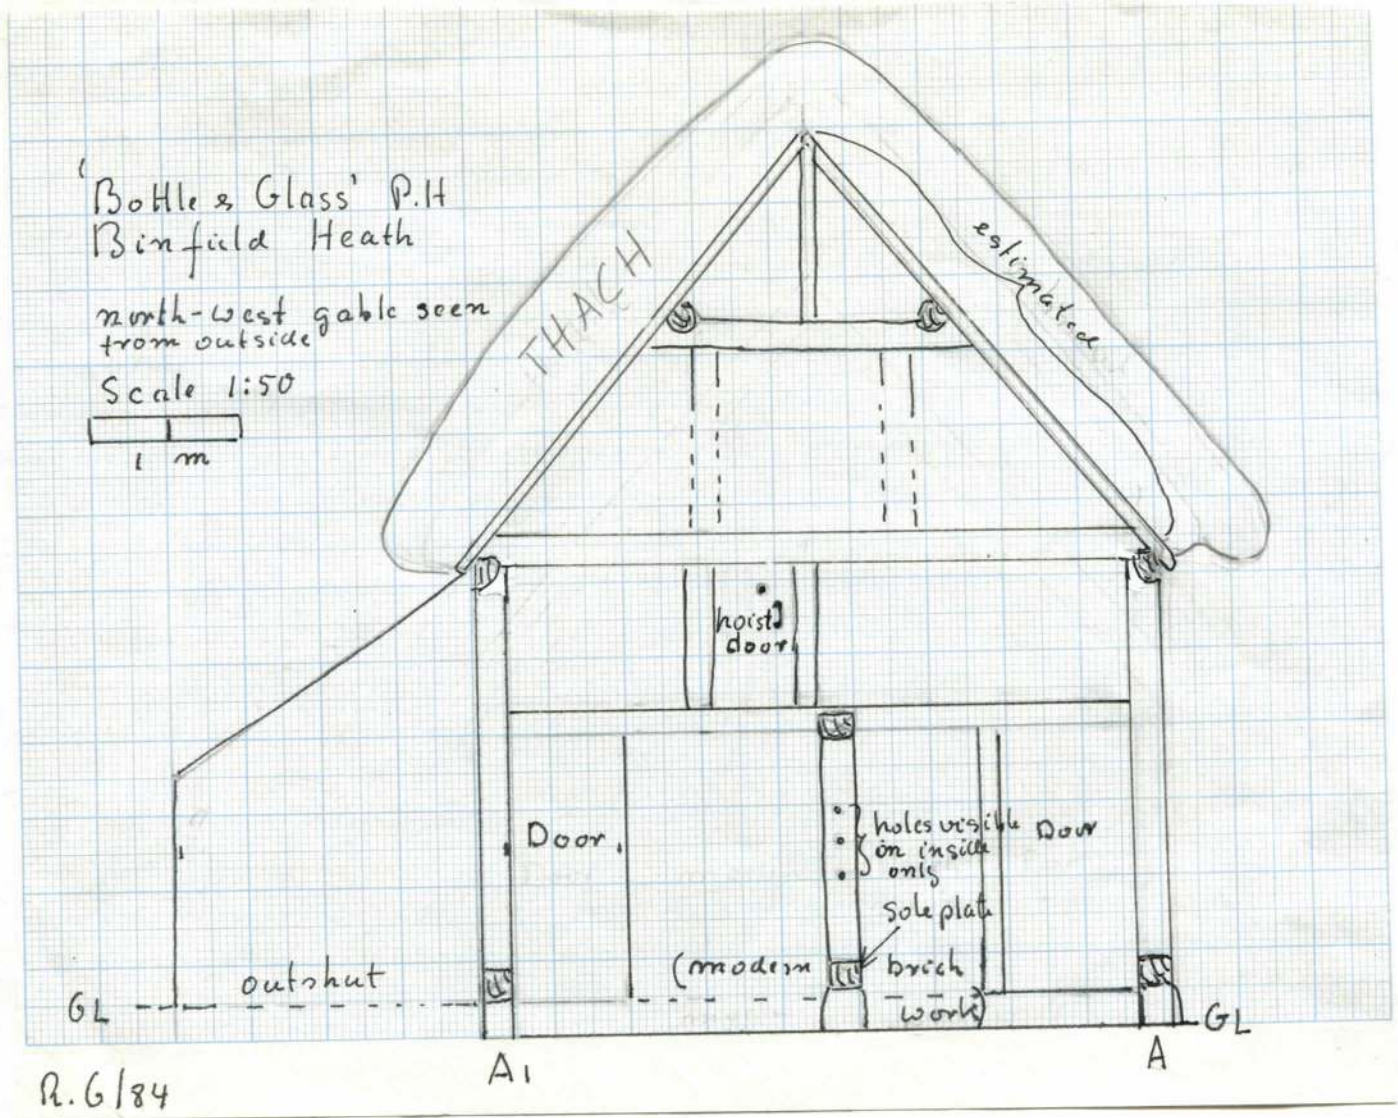 'Bottle & Glass' P.H
Binfield Heath
north-west gable seen
from outside
Scale 1:50
1 m
THACH
estimated
hoist
door
Door
holes visible
on inside
only
Door
sole plate
(modern brick
work)
outshut
GL
GL
A1
A
R.G/84